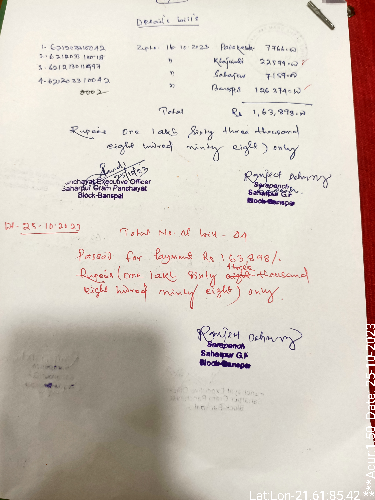 Details bill's
1- 62120301 0042 Sept 16.10.2023 7966=00
2- 62120301 0018 " 22599=00
3- 62121301 " Sahajpur 7159=00
4- 62120331 0042 " Banspal 126274=00
0002
Total Rs 1,63,898=00
Rupees one lakh Sixty three thousand
eight hundred ninty eight) only
Panchayat Executive Officer
Saharpur Gram Panchayat
Block-Banspal
Ranjeet
Sarapanch
Saharpur G.P
Block-Banspal
Dt-25-10-2023
Total No. of bill - 04
Passed for Payment Rs 1,63,898/-
Rupees (one lakh Sixty three thousand
eight hundred ninty eight) only.
Ranjeet
Sarapanch
Saharpur G.P
Block-Banspal
Lat Lon-21 61:85.42 ***Acur 1.90 Date: 25-10-2023